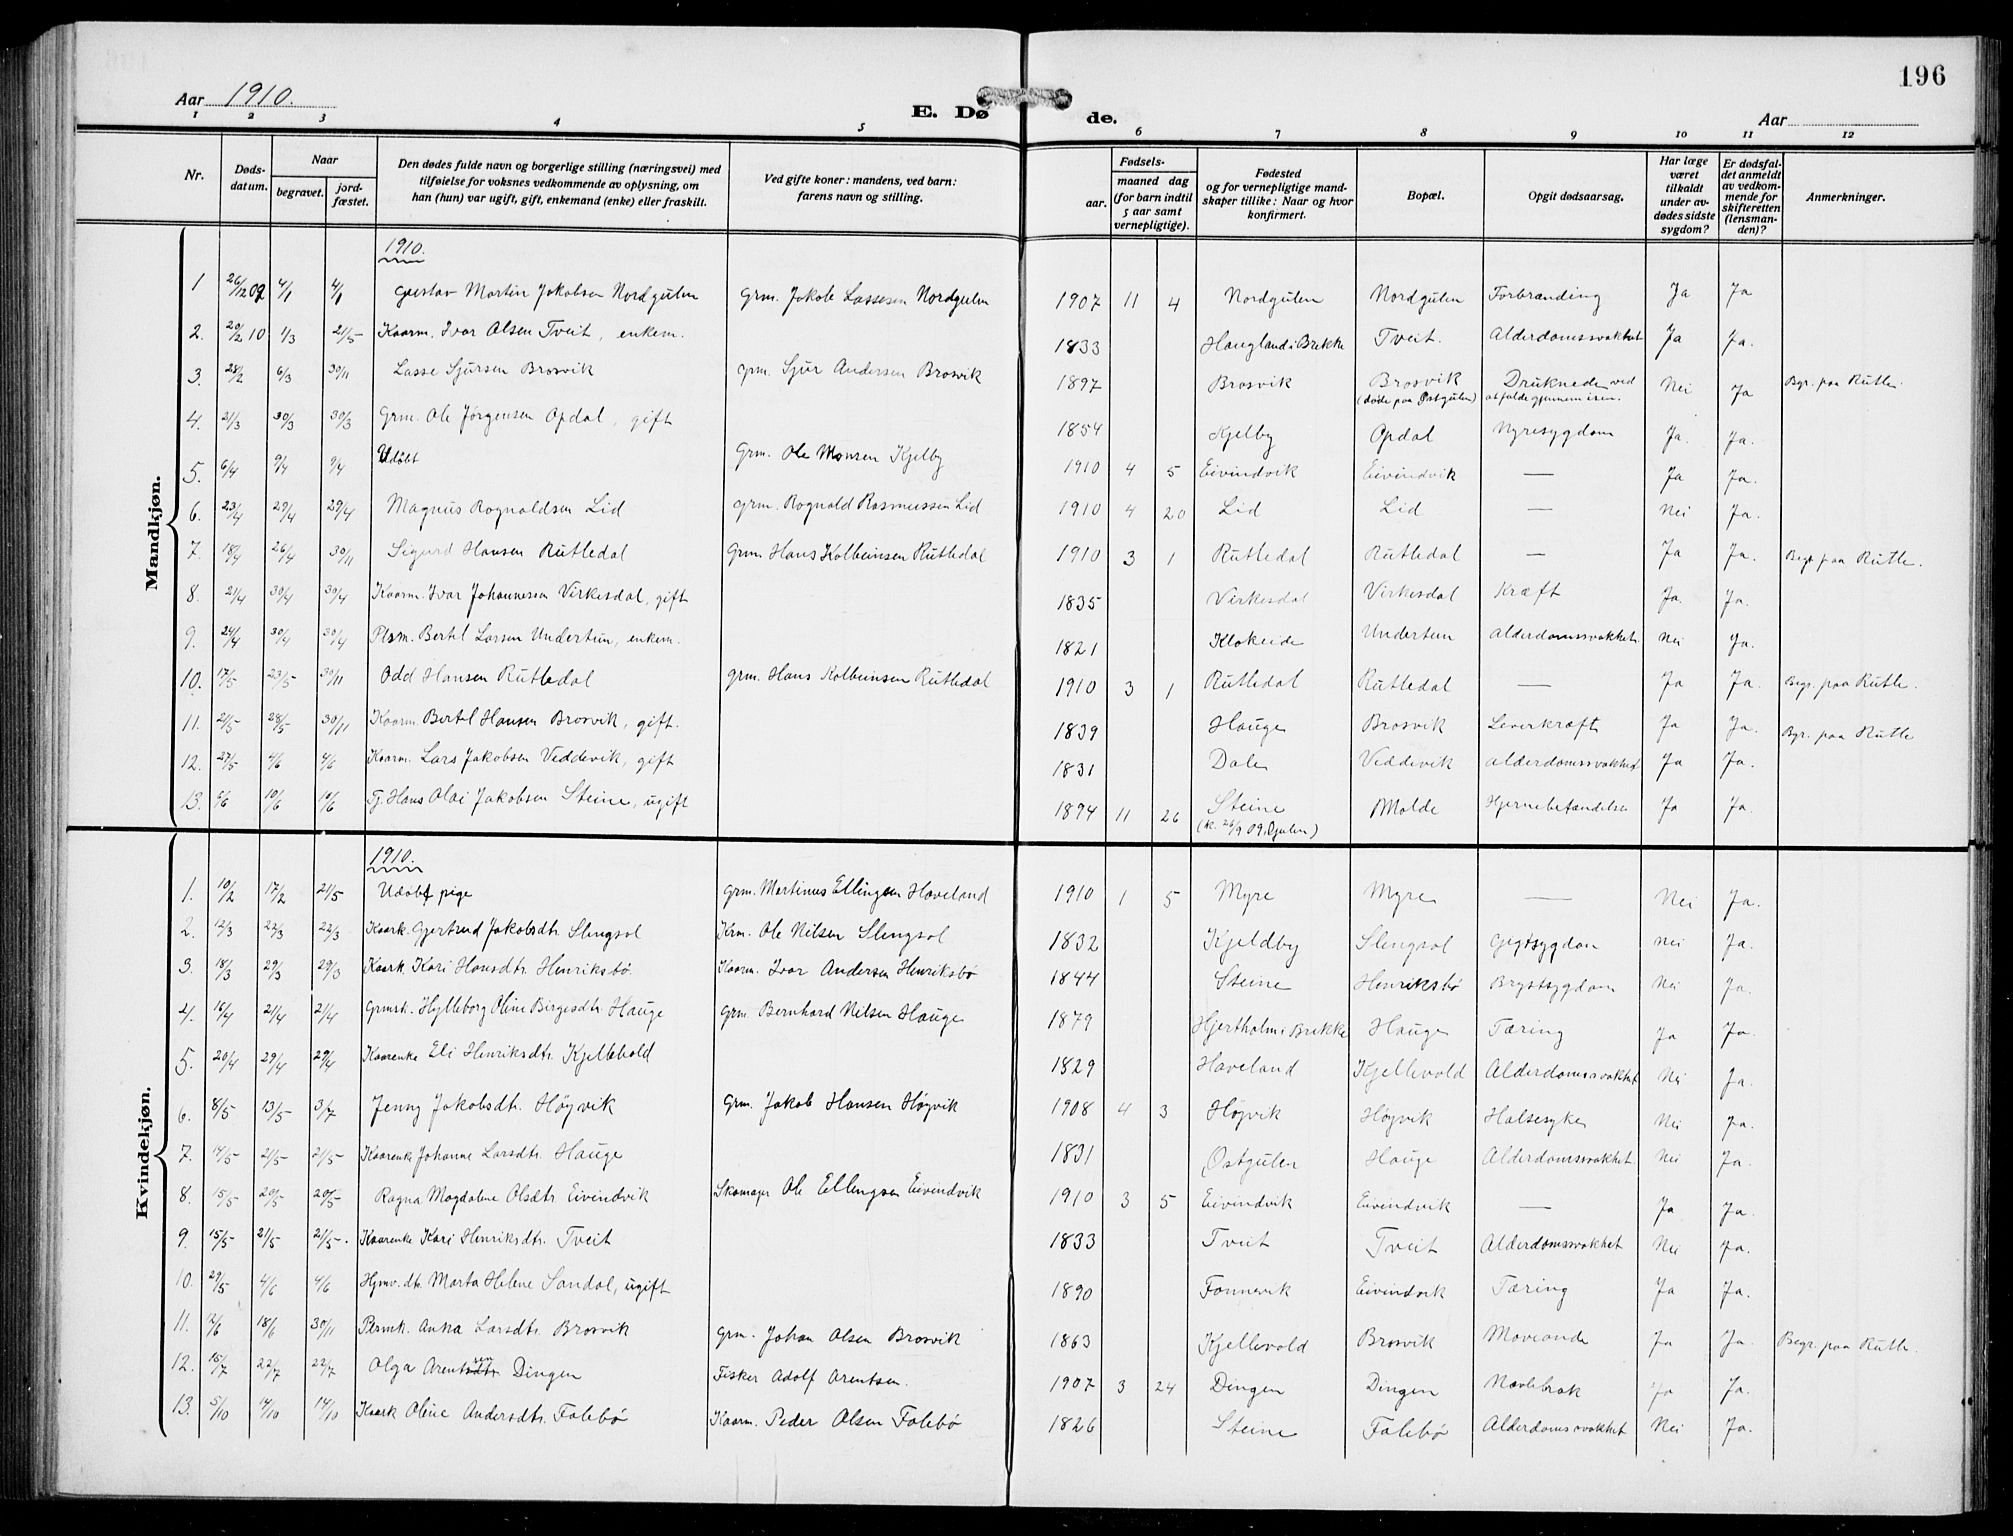 196
Aar 1910.
E. Døde.
Aar
1 2 3 4 5 6 7 8 9 10 11 12
Nr.
Døds-datum.
Naar
begravet.
jord-fæstet.
Den dødes fulde navn og borgerlige stilling (næringsvei) med tilføielse for voksnes vedkommende av oplysning, om han (hun) var ugift, gift, enkemand (enke) eller fraskilt.
Ved gifte koner: mandens, ved barn: farens navn og stilling.
Fødsels-
aar. maaned dag
(for barn indtil 5 aar samt vernepligtige).
Fødested og for vernepligtige mandskaper tillike: Naar og hvor konfirmert.
Bopæl.
Opgit dødsaarsag.
Har læge været tilkaldt under avdødes sidste sygdom?
Er dødsfaldet anmeldt av vedkommende for skifteretten (lensmanden)?
Anmerkninger.
Mandkjøn.
1910.
1 26/12 09 4/1 4/1 Gustav Martin Jakobsen Nordgulen Grm. Jakob Lassesen Nordgulen 1907 11 4 Nordgulen Nordgulen Forbrænding Ja Ja
2. 20/2 10 1/3 21/5 Kaarm. Ivar Olsen Tveit, enkem. 1833 Haugland i Brekke Tveit. Alderdomssvakhet Ja Ja.
3. 28/2 6/3 30/11 Lasse Sjursen Brosvik grm. Sjur Andersen Brosvik 1897 Brosvik Brosvik (døde paa Østgulen) Druknede ved at falde gjennem isen. Nei Ja Begr. paa Rutle.
4. 21/3 30/3 30/3 Grm. Ole Jørgensen Opdal, gift 1854 Kjelby Opdal Nyresygdom Ja. Ja.
5. 6/4 9/4 9/4 Udøbt Grm. Ole Monsen Kjelby 1910 4 5 Eivindvik Eivindvik — Ja Ja.
6. 23/4 29/4 29/4 Magnus Rognaldsen Lid grm. Rognald Rasmussen Lid 1910 4 20 Lid Lid — Nei Ja.
7. 18/4 26/4 30/11 Sigurd Hansen Rutledal Grm. Hans Kolbeinsen Rutledal 1910 3 1 Rutledal Rutledal — Ja Ja. Begr. paa Rutle.
8. 21/4 30/4 30/4 Kaarm. Ivar Johannesen Virkesdal, gift 1835 Virkesdal Virkesdal Kræft Ja. Ja.
9. 24/4 30/4 30/4 Plsm. Bertel Larsen Undertun, enkem. 1821 Klokeide Undertun Alderdomssvakhet. Nei Ja.
10. 17/5 23/5 30/11 Odd Hansen Rutledal grm. Hans Kolbeinsen Rutledal 1910 3 1 Rutledal Rutledal — Ja Ja. Begr. paa Rutle.
11. 21/5 28/5 30/11 Kaarm. Bertel Hansen Brosvik, gift. 1839 Hauge Brosvik Leverkræft Ja Ja. Begr. paa Rutle
12. 27/5 4/6 4/6 Kaarm. Lars Jakobsen Veddevik, gift 1831 Dale Veddevik Alderdomssvakhed. Ja Ja.
13. 5/6 10/6 10/6 Tj. Hans Olai Jakobsen Steine, ugift 1894 11 26 Steine (k. 26/9 09, Gulen) Molde Hjernebetændelse Ja Ja.
Kvindekjøn.
1910.
1. 10/2 17/2 21/5 Udøbt pige Grm. Martinus Ellingsen Haveland 1910 1 5 Myre Myre — Nei Ja.
2. 12/3 22/3 22/3 Kaark. Gjertrud Jakobsdtr. Slengsol Krm. Ole Nilsen Slengsol 1832 Kjeldby Slengsol Gigtsygdom Nei Ja.
3. 18/3 29/3 29/3 Kaark Kari Hansdtr. Henriksbø. Kaarm. Ivar Andersen Henriksbø 1844 Steine Henriksbø Brystsygdom Nei Ja.
4. 16/4 21/4 21/4 Grmsk. Hylleborg Oline Birgesdtr. Hauge grm. Bernhard Nilsen Hauge 1879 Hjertholm i Brekke Hauge Tæring Ja Ja.
5. 20/4 29/4 29/4 Kaarenke Eli Henriksdtr. Kjellevold 1829 Haveland Kjellevold Alderdomssvakhet Nei Ja.
6. 8/5 13/5 3/7 Jenny Jakobsdtr. Høyvik Grm. Jakob Hansen Høyvik 1908 4 3 Høyvik Høyvik Halsesyke Nei Ja.
7. 14/5 21/5 21/5 Kaarenk Johanne Larsdtr. Hauge 1831 Østgulen Hauge Alderdomssvakhet. Nei Ja.
8. 15/5 20/5 20/5 Ragna Magdalene Olsdtr. Eivindvik Skomager Ole Ellingsen Eivindvik 1910 3 5 Eivindvik Eivindvik — Ja Ja.
9. 15/5 21/5 21/5. Kaarenke Kari Henriksdtr. Tveit 1833 Tveit Tveit Alderdomssvakhet Nei Ja.
10. 29/5 4/6 4/6 Hjmv. dtr. Marta Helene Sandal, ugift 1890 Fonnevik Eivindvik Tæring Ja Ja.
11. 12/6 18/6 30/11 Anna Larsdtr. Brosvik grm. Johan Olsen Brosvik 1863 Kjellevold Brosvik Mavëonde Ja Ja. Begr. paa Rutle.
12. 15/7 22/7 22/7 Olga Arentsen Dingen Fisker Adolf Arentsen. 1907 3 24 Dingen Dingen Navlebrok Ja Ja.
13. 5/10 14/10 14/10 Kaark Oline Andersdtr. Falebø Kaarm. Peder Olsen Falebø 1826 Steine Falebø Alderdomssvakhet Nei Ja.